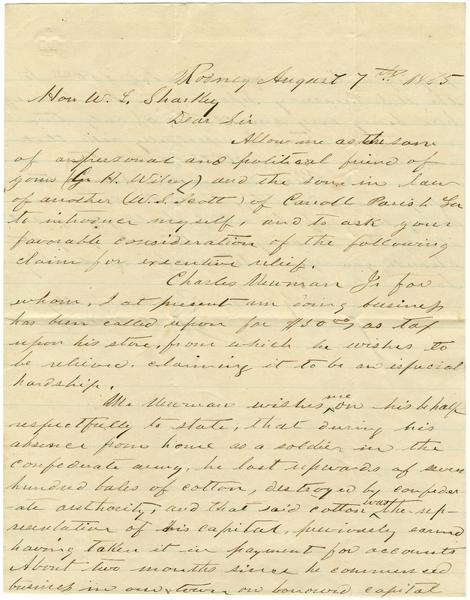 Rodney August 7th 1865
Hon W. L. Sharkey
Dear Sir
Allow me as the son
of a personal and political friend of
yours ( H. Wilcox) and the son in law
of another (W. S. Scott) of Carroll Parish La
to introduce myself, and to ask your
favorable consideration of the following
claim for executive relief.
Charles Newman Jr for
whom, I at present am doing business
has been called upon for $50 00 as tax
upon his store, from which he wishes to
be relieved. claiming it to be an especial
hardship.
Mr Newman wishes me on his behalf
respectfully to state, that during his
absence from home as a soldier in the
confederate army, he lost upwards of seven
hundred bales of cotton, destroyed by confeder
-ate authority; and that said cotton was the rep-
-resentation of his capital, previously earned
having taken it in payment for accounts
About two months since he commenced
business in our town on borrowed capital